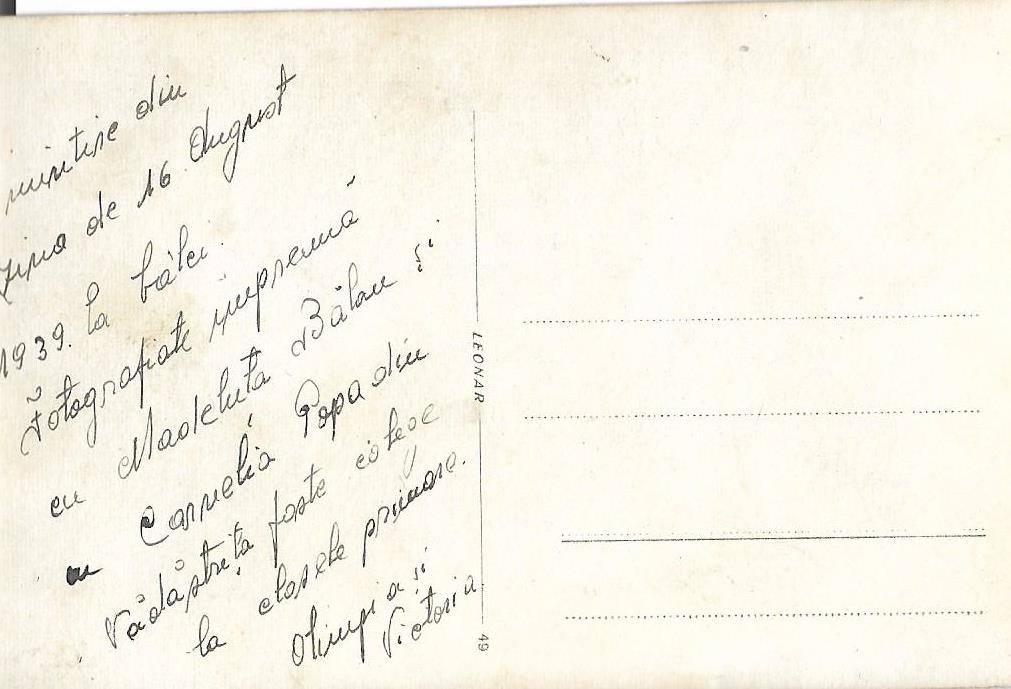 mintire din
ziua de 16 August
1939. la bâlci.
Fotografiate împreună
cu Madeluta Bălan și
cu Cornelia Popa din
Vădăstrița foste colege
la clasele primare.
Olimpia și
Victoria
LEONAR
49